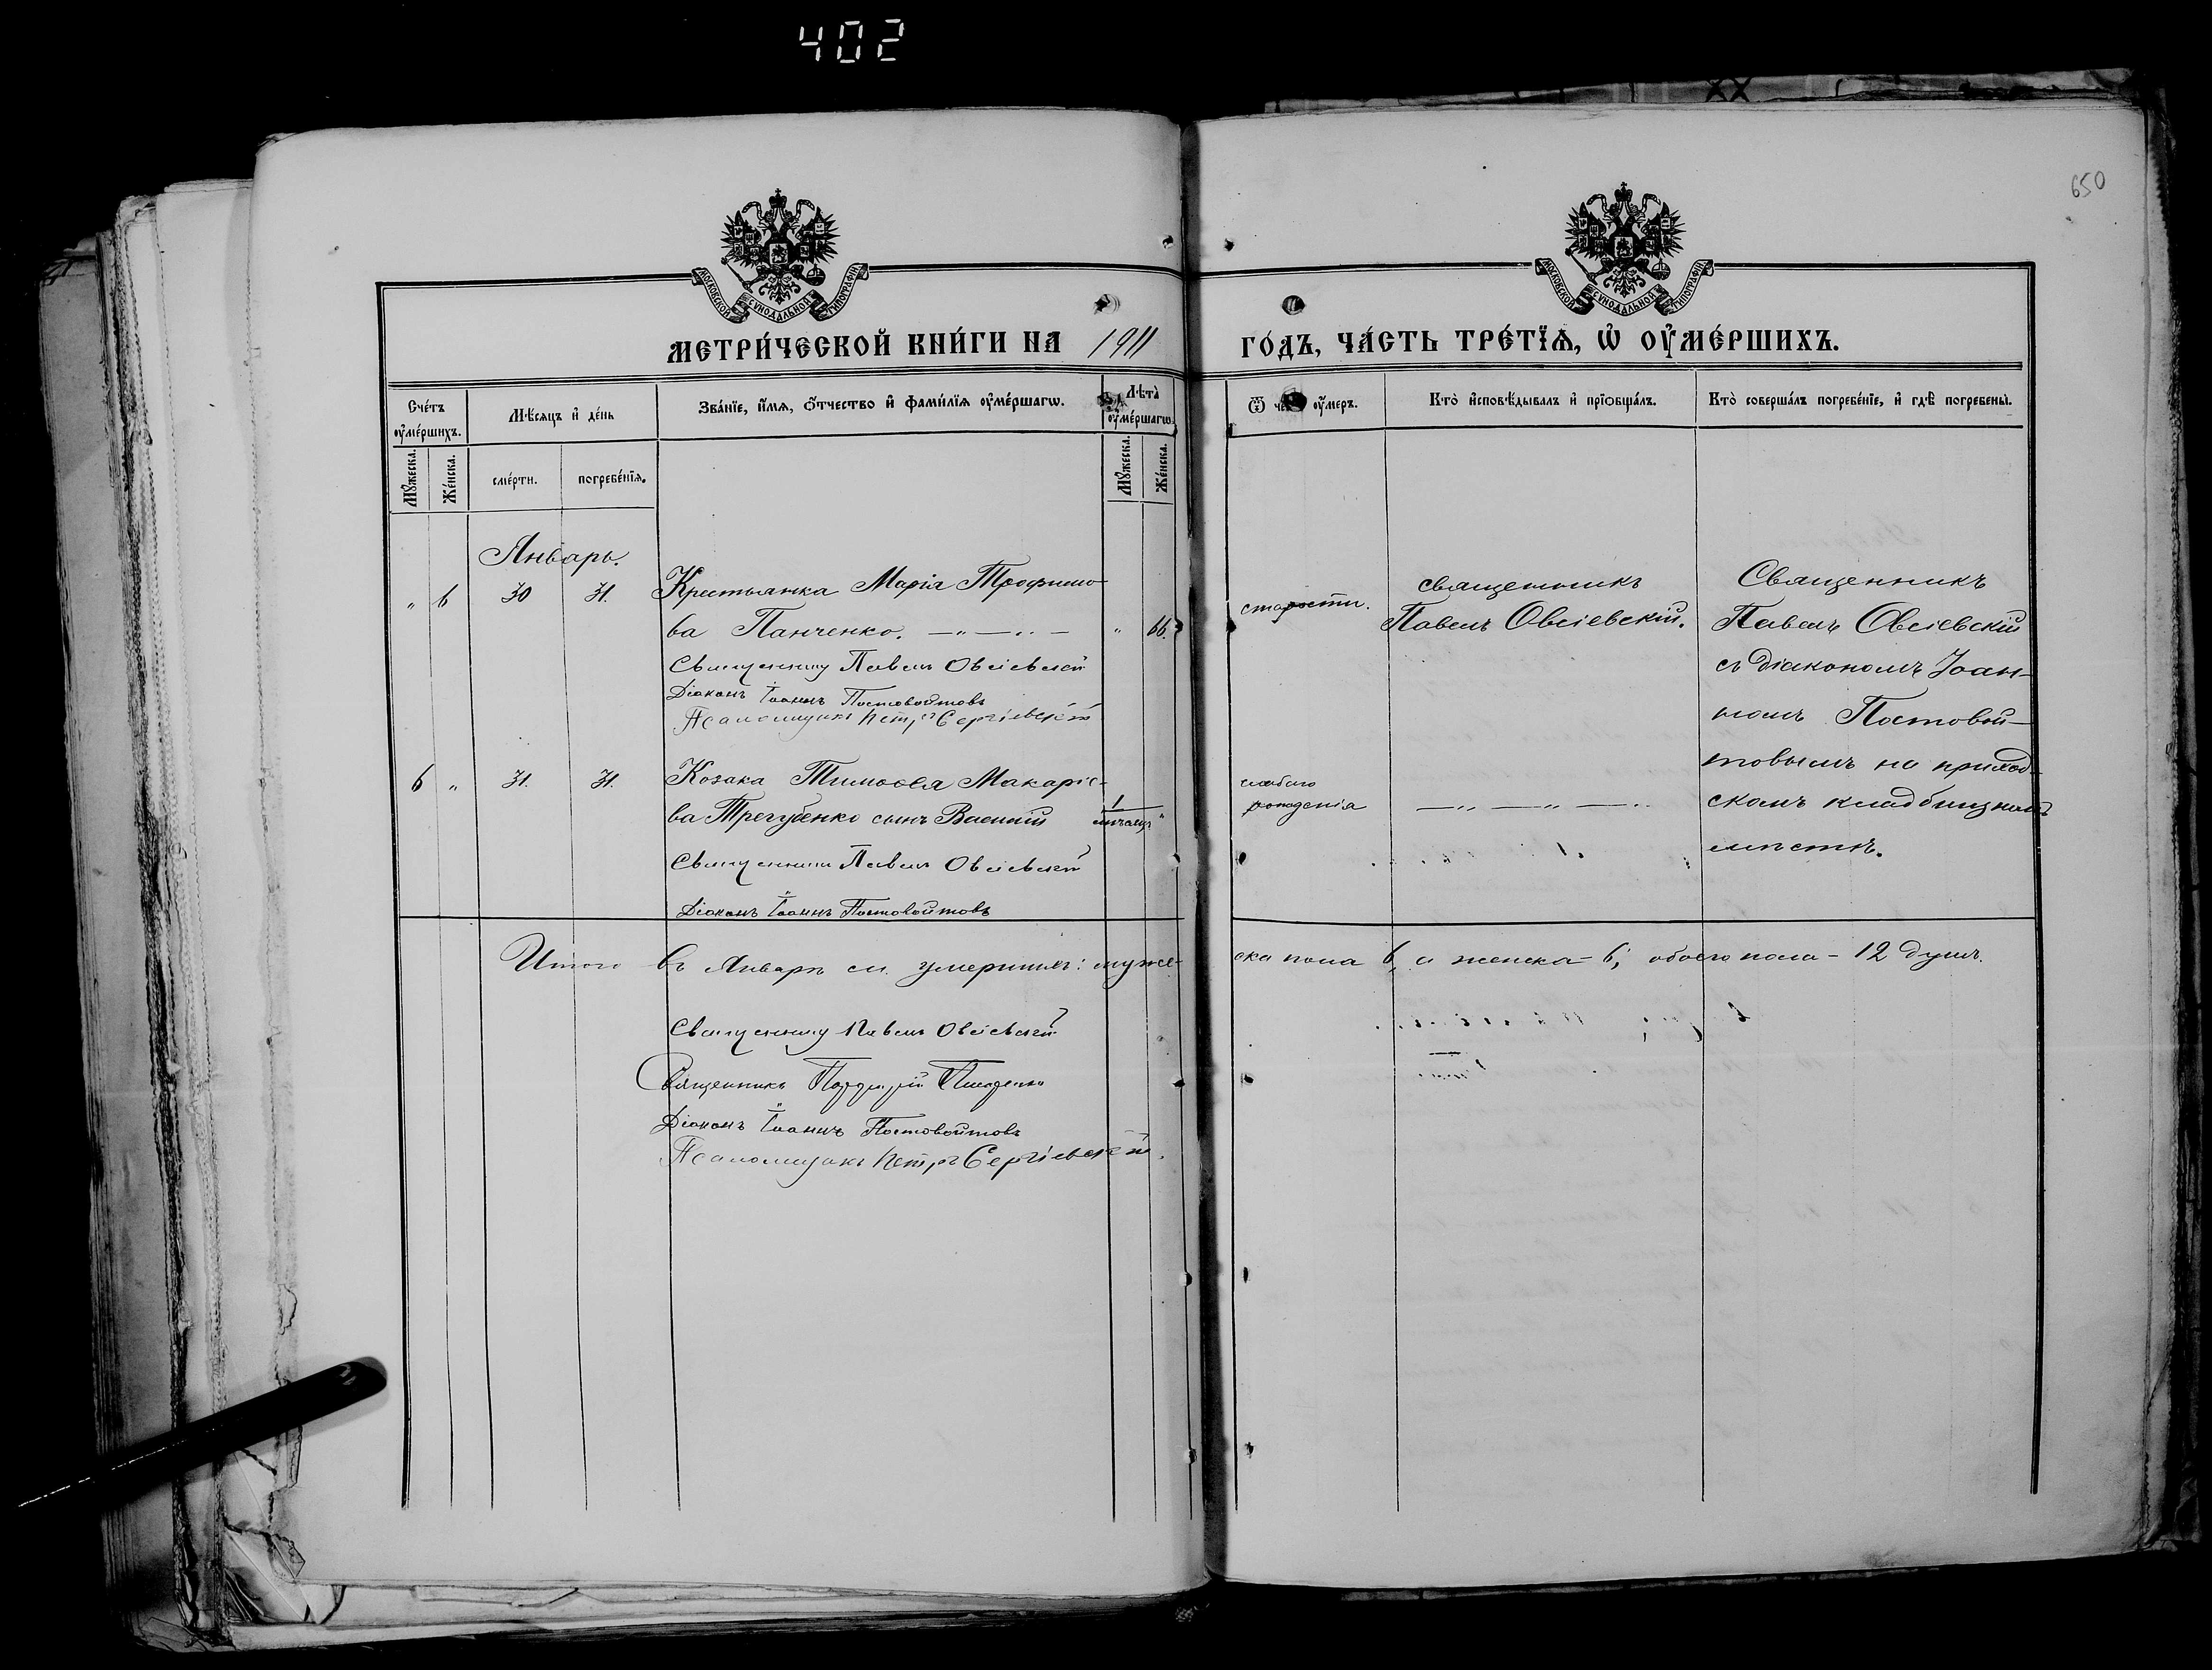 402
650
МОСКОВСКОЙ СѴНОДАЛЬНОЙ ТИПОГРАФІИ
МОСКОВСКОЙ СѴНОДАЛЬНОЙ ТИПОГРАФІИ
МЕТРИ́ЧЕСКОЙ КНИ́ГИ НА 1911
ГО́ДЪ, ЧА́СТЬ ТРЕ́ТЇѦ, Ѡ҆ ОУ҆МЕ́РШИХЪ.
Сче́тъ оу҆ме́ршихъ.
Мꙋ́жеска.
Же́нска.
Мѣ́сяцъ и҆ де́нь
сме́рти.
погребе́нїѧ.
Зва́нїе, и҆́мѧ, ѻ҆́тчество и҆ фами́лїѧ оу҆ме́ршагѡ.
Лѣ́та оу҆ме́ршагѡ.
Мꙋ́жеска.
Же́нска.
Ѿ чегѡ̀ оу҆́меръ.
Кто̀ и҆сповѣ́дывалъ и҆ прїѡбща́лъ.
Кто̀ соверша́лъ погребе́нїе, и҆ гдѣ̀ погребены̀.
Январь.
" 6 30 31. Крестьянка Марія Трофимо-
ва Панченко. — " — " — " 66.
Священникъ Павелъ Овсіевскій
Діаконъ Іоаннъ Постовойтовъ
Псаломщикъ Петръ Сергіевскій
старости.
священникъ
Павелъ Овсіевскій.
Священникъ
Павелъ Овсіевскій
съ діакономъ Іоан-
номъ Постовой-
товымъ на приход-
скомъ кладбищномъ
мѣстѣ.
6 " 31. 31. Козака Тимоѳея Макаріе-
ва Трегубенко сынъ Василій 1 мѣсяц. "
слабаго
рожденія — " — " — "
Священникъ Павелъ Овсіевскій
Діаконъ Іоаннъ Постовойтовъ
Итого въ Январѣ м. умершихъ: муже-
ска пола 6, а женска – 6; обоего пола – 12 душъ.
Священникъ Павелъ Овсіевскій
Священникъ
Діаконъ Іоаннъ Постовойтовъ
Псаломщикъ Петръ Сергіевскій.